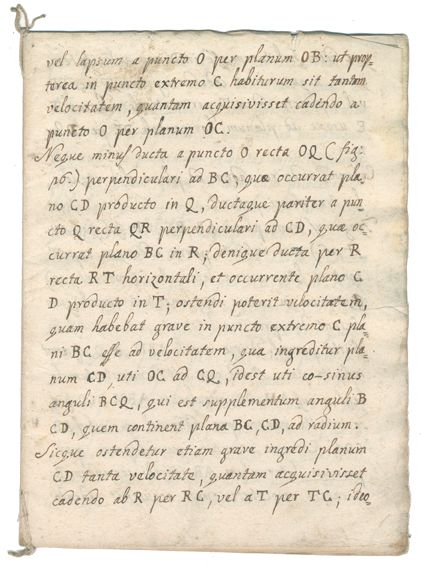 vel lapsum a puncto O per planum OB: ut prop-
terea in puncto extremo C habiturum sit tantam
velocitatem, quantam acquisivisset cadendo a
puncto O per planum OC.
Neque minus ducta a puncto O recta OQ (fig:
16.) perpendiculari ad BC, quæ occurrat pla-
no CD producto in Q, ductaque pariter a pun-
cto Q recta QR perpendiculari ad CD, quæ oc-
currat plano BC in R; denique ducta per R
recta RT horizontali, et occurrente plano C
D producto in T; ostendi poterit velocitatem,
quam habebat grave in puncto extremo C pla-
ni BC esse ad velocitatem, qua ingreditur pla-
num CD, uti OC ad CQ, idest uti co-sinus
anguli BCQ, qui est supplementum anguli B
CD, quem continent plana BC, CD, ad radium.
Sicque ostendetur etiam grave ingredi planum
CD tanta velocitate, quantam acquisivisset
cadendo ab R per RC, vel a T per TC; ideo-